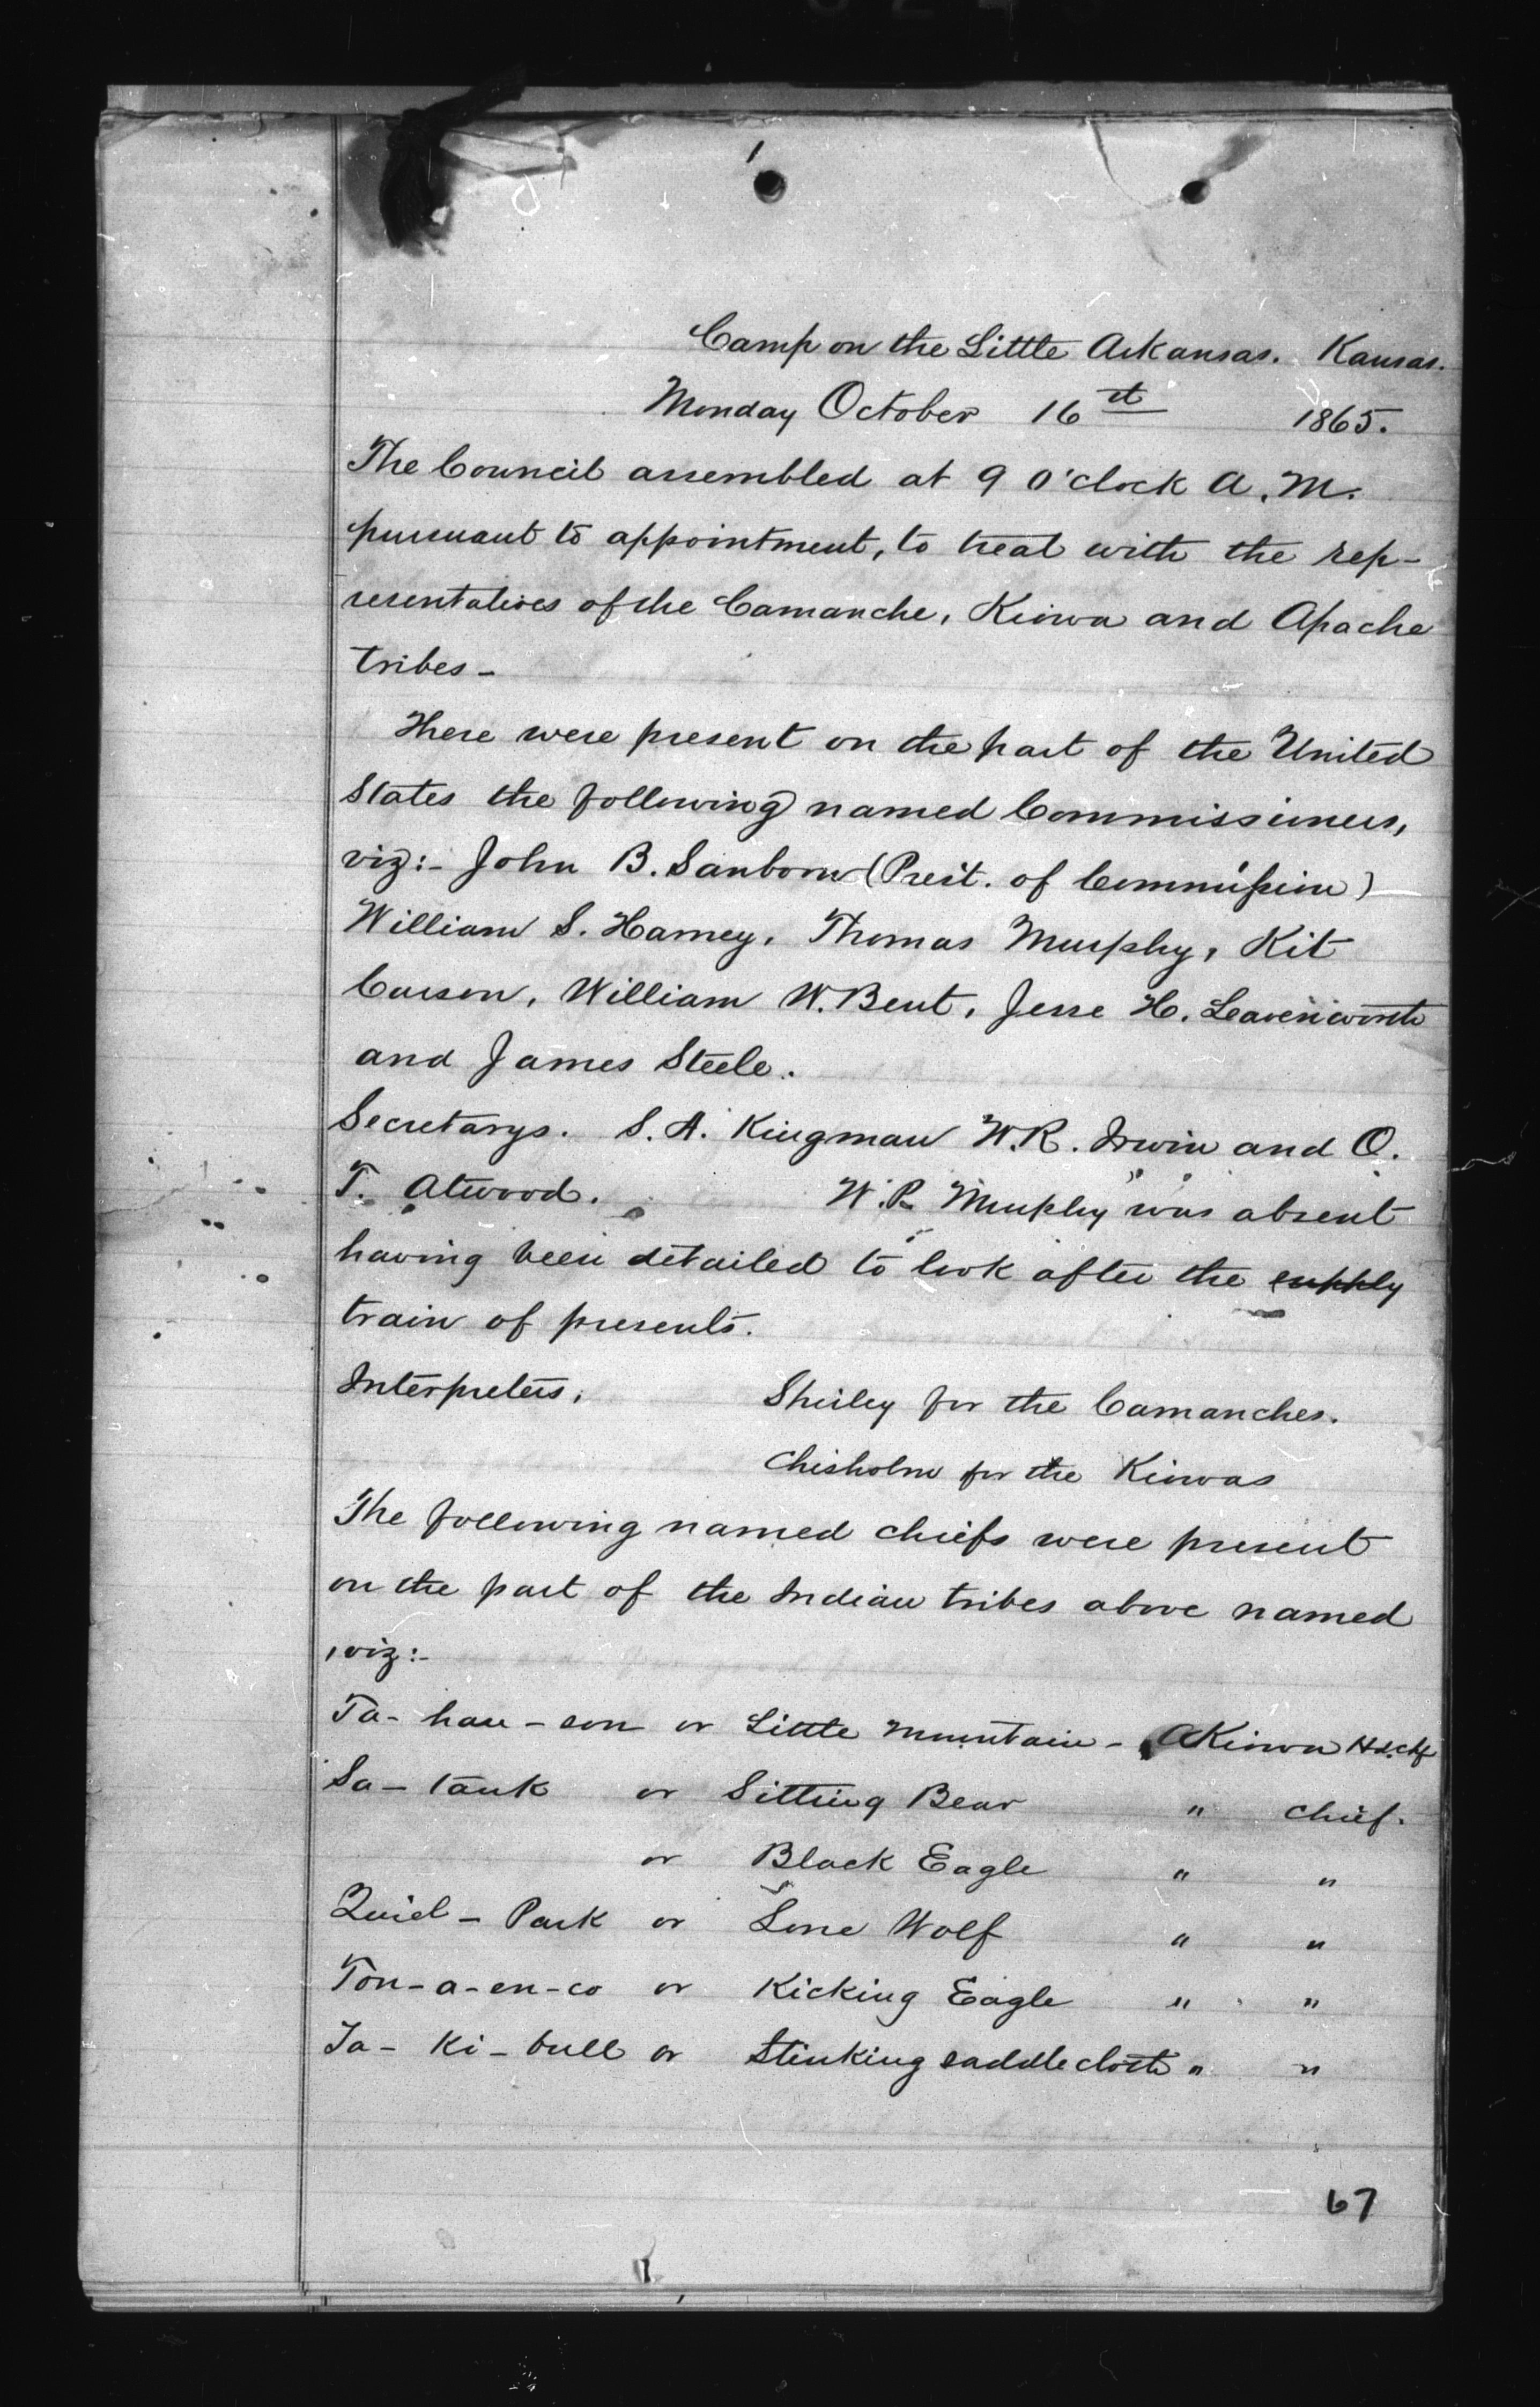 1
Camp on the Little Arkansas. Kansas.
Monday October 16st 1865.
The Council assembled at 9 O'clock A.M.
pursuant to appointment, to treat with the rep-
resentatives of the Camanche, Kiowa and Apache
tribes -
There were present on the part of the United
States the following named Commissioners,
viz:- John B. Sanborn (Prest. of Commission)
William S. Harney, Thomas Murphy, Kit
Carson, William W. Bent, Jesse H. Leavenworth
and James Steele.
Secretarys. S. A. Kingman W. R. Irwin and O.
T. Atwood. W. R. Murphy was absent
having been detailed to look after the supply
train of presents.
Interpreters, Shirley for the Camanches.
Chisholm for the Kiowas
The following named chiefs were present
on the part of the Indian tribes above named
, viz:-
Ta- hau - son or Little Mountain - A Kiowa Hd. chf
Sa - tank or Sitting Bear " chief.
or Black Eagle " "
Quiel - Park or Lone Wolf " "
Ton - a - en - co or Kicking Eagle " "
Ta - Ki - bull or Stinking saddle cloth " "
67